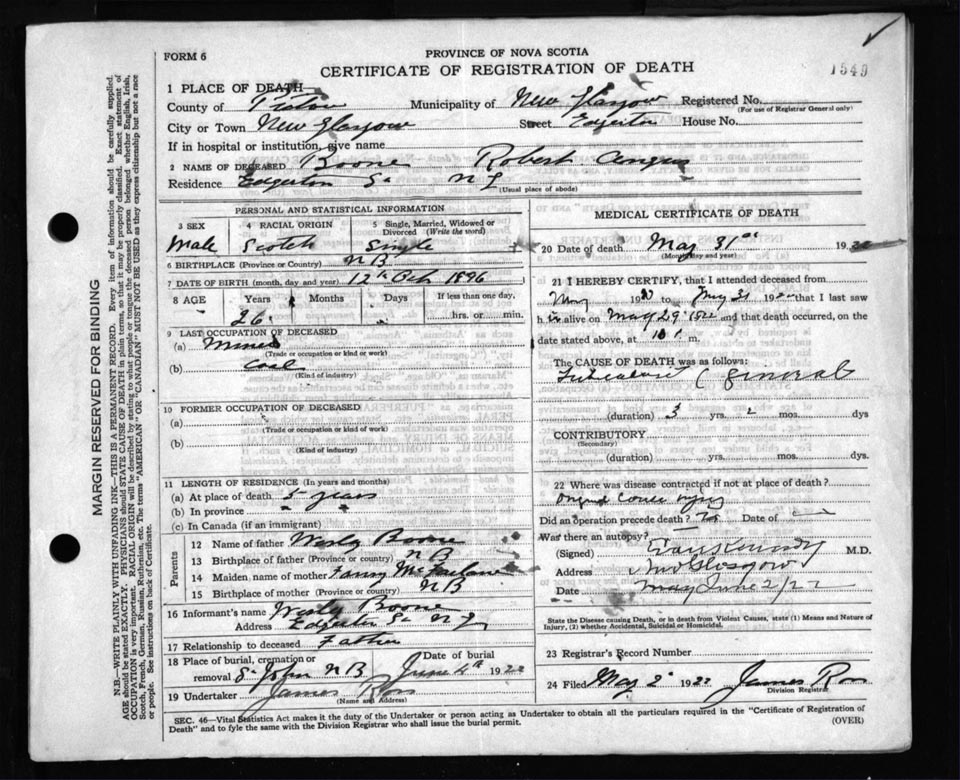 FORM 6
PROVINCE OF NOVA SCOTIA
CERTIFICATE OF REGISTRATION OF DEATH
1549
1 PLACE OF DEATH
County of Pictou Municipality of New Glasgow Registered No.
(For use of Registrar General only)
City or Town New Glasgow Street Edgerton House No.
If in hospital or institution, give name
2 NAME OF DECEASED Boone Robert Angus
Residence Edgerton St N G
(Usual place of abode)
PERSONAL AND STATISTICAL INFORMATION
3 SEX 4 RACIAL ORIGIN 5 Single, Married, Widowed or Divorced (Write the word)
Male Scotch Single
6 BIRTHPLACE (Province or Country) N B
7 DATE OF BIRTH (month, day and year) 12th Oct 1896
8 AGE Years Months Days If less than one day,
26 hrs. or min.
9 LAST OCCUPATION OF DECEASED
(a) Miner
(Trade or occupation or kind or work)
(b) Coal
(Kind of industry)
10 FORMER OCCUPATION OF DECEASED
(a)
(Trade or occupation or kind of work)
(b)
(Kind of industry)
11 LENGTH OF RESIDENCE (In years and months)
(a) At place of death 5 years
(b) In province
(c) In Canada (if an immigrant)
Parents
12 Name of father Wesly Boone
13 Birthplace of father (Province or country) N B
14 Maiden name of mother Fanny McFarlane
15 Birthplace of mother (Province or country) N B
16 Informant's name Wesly Boone
Address Edgerton St N G
17 Relationship to deceased Father
18 Place of burial, cremation or removal St John N B Date of burial June 4th 1922
19 Undertaker James Ross
(Name and Address)
MEDICAL CERTIFICATE OF DEATH
20 Date of death May 31st 1922
(Month, day and year)
21 I HEREBY CERTIFY, that I attended deceased from
May 1920 to May 31 1922 that I last saw
h im alive on May 29 1922 and that death occurred, on the
date stated above, at m.
The CAUSE OF DEATH was as follows:
General
(duration) 3 yrs. 2 mos. dys
CONTRIBUTORY
(Secondary)
(duration) yrs. mos. dys.
22 Where was disease contracted if not at place of death?
Did an operation precede death? Date of
Was there an autopsy?
(Signed) Kennedy M.D.
Address New Glasgow
Date June 2/22
State the Disease causing Death, or in death from Violent Causes, state (1) Means and Nature of Injury, (2) whether Accidental, Suicidal or Homicidal.
23 Registrar's Record Number
24 Filed May 2 1922 James Ross
Division Registrar
SEC. 46—Vital Statistics Act makes it the duty of the Undertaker or person acting as Undertaker to obtain all the particulars required in the "Certificate of Registration of
Death" and to fyle the same with the Division Registrar who shall issue the burial permit.
(OVER)
MARGIN RESERVED FOR BINDING
N.B.—WRITE PLAINLY WITH UNFADING INK—THIS IS A PERMANENT RECORD. Every item of information should be carefully supplied.
AGE should be stated EXACTLY. PHYSICIANS should STATE CAUSE OF DEATH in plain terms, so that it may be properly classified. Exact statement of
OCCUPATION is very important. RACIAL ORIGIN will be described by stating to what people or tongue the deceased person belonged whether English, Irish,
Scotch, French, German, Russian, Ruthenian, etc. The terms "AMERICAN" OR "CANADIAN" MUST NOT BE USED as they express citizenship but not a race
or people. See instructions on back of Certificate.